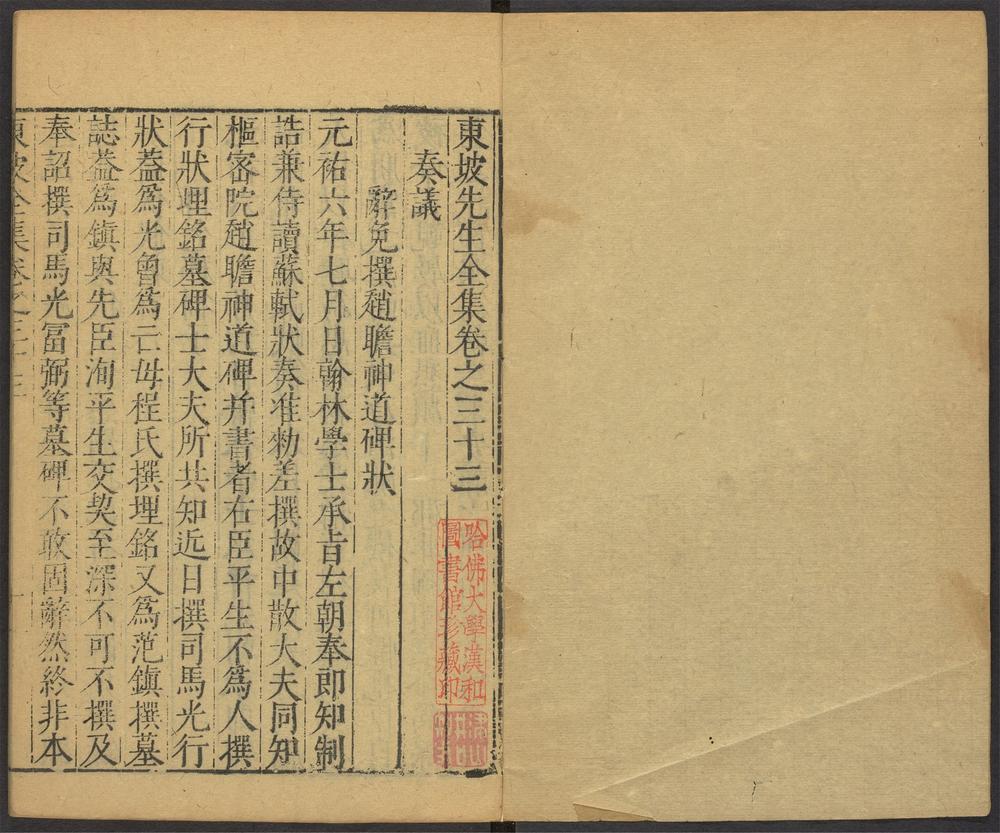 東坡先生全集卷之三十三
奏議
辭免撰趙瞻神道碑狀
元祐六年七月日翰林學士承旨左朝奉郎知制
誥兼侍讀蘇軾狀奏准勑差撰故中散大夫同知
樞密院趙瞻神道碑并書者右臣平生不爲人撰
行狀埋銘墓碑士大夫所共知近日撰司馬光行
狀葢爲光曾爲亡母程氏撰埋銘又爲范鎮撰墓
誌葢爲鎮與先臣洵平生交契至深不可不撰及
奉詔撰司馬光富弼等墓碑不敢固辭然終非本
東坡全集卷之三十三
哈佛大學漢和
圖書館珍藏印